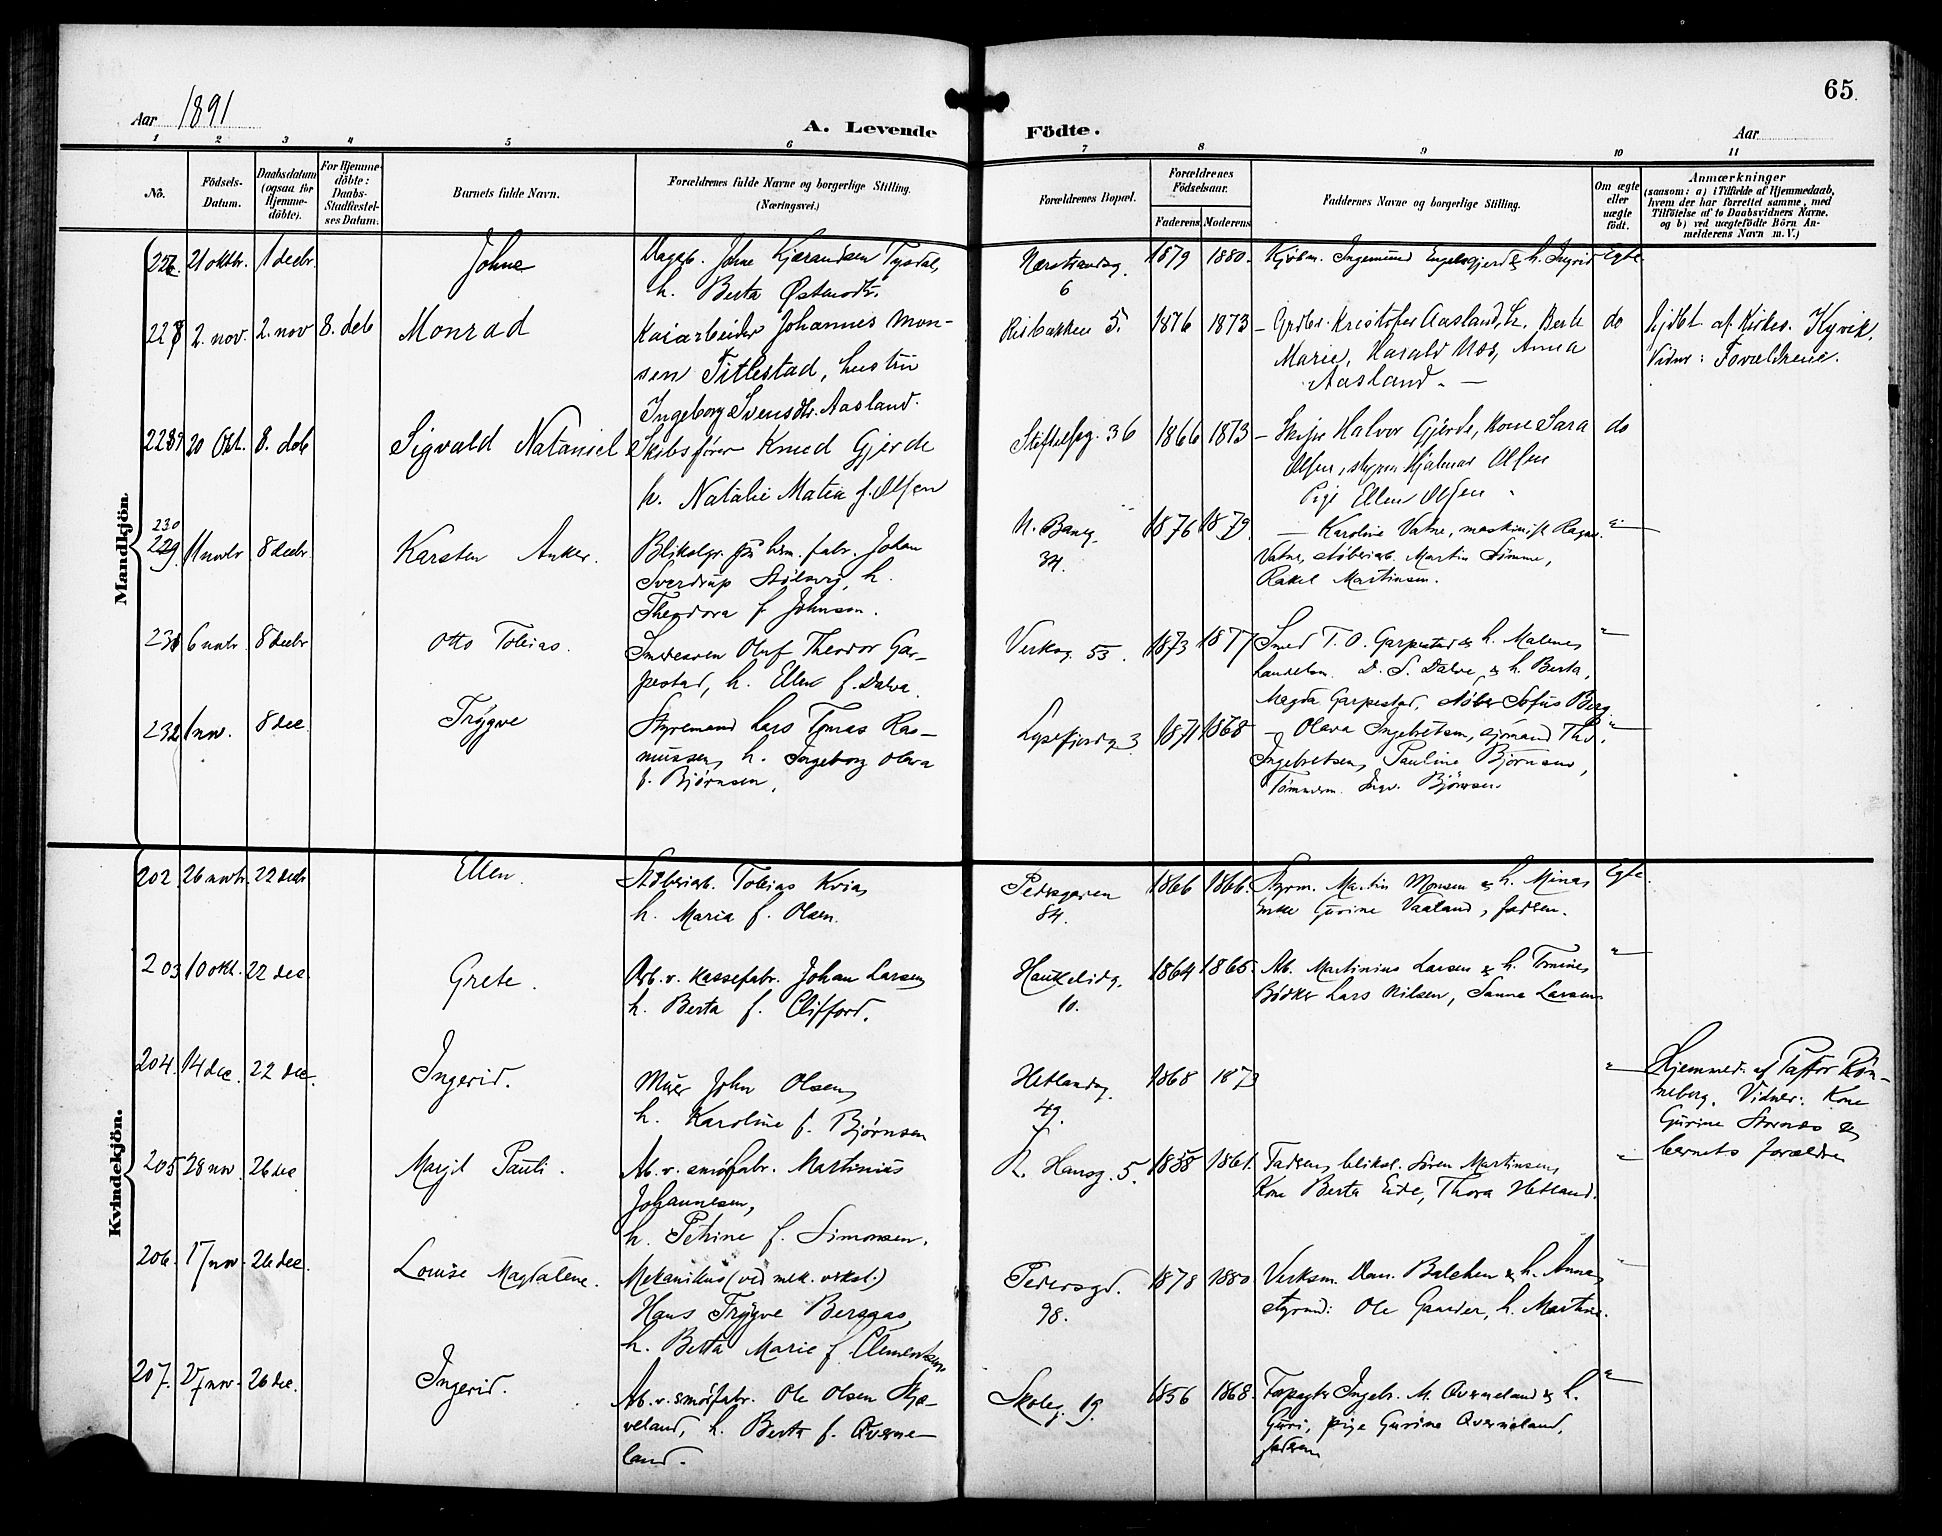 65.
Aar 1891
A. Levende Födte.
Aar
1 2 3 4 5 6 7 8 9 10 11
No.
Födsels-Datum.
Daabsdatum (ogsaa for Hjemme-döbte).
For Hjemme-döbte: Daabs-Stadfæstel-ses Datum.
Barnets fulde Navn.
Forældrenes fulde Navne og borgerlige Stilling.
(Næringsvei.)
Forældrenes Bopæl.
Forældrenes Födselsaar.
Faderens Moderens
Faddernes Navne og borgerlige Stilling.
Om ægte eller uægte födt.
Anmærkninger
(saasom: a) i Tilfælde af Hjemmedaab,
hvem der har forrettet samme, med
Tilföielse af to Daabsvidners Navne,
og b) ved uægtefödte Börn An-
melderens Navn m. V.)
Mandkjön.
21 oktbr. 1 decbr. Johne
Johne Kjærandsen Tysdal,
h. Berta Østenodtr.
Nærstrandsg.
6
1879 1880. Ingemund h. Ingrid Egte
2. nov. 2. nov 8. deb Monrad
Kaiarbeider Johannes Mon-
sen Tittestad, hustru
Ingeborg Svensdtr. Aasland.
5.
1876 1873 Kristofer Aasland, h. Berte
Marie, Harald Næs, Anna
Aasland. —
do
af Kirkes. Kyvik.
Vidner: Forældrene.
20 Okt. 8. deb Sigvald Nataniel
Skibsfører Knud Gjerde
h. Natalie Matea f. Olsen
36
1866 1873 Halvor Gjerde, Kone Sara
Olsen, Hjalmar Olsen
Pige Ellen Olsen
do
230
229 11 novbr 8 decbr. Karsten Anker.
Blikslgr. på hrm. fabr. Johan
Sverdrup Stølsvig, h.
Theodora f. Johnson.
N. Bang.
34.
1876 1879. — Karoline Vatne, maskinist Ragnv.
Vatne, støberiarb. Martin Sømme,
Rakel Martinsen.
231 6 novbr 8 decbr Otto Tobias.
Smedsven Oluf Theodor Gar-
pestad, h. Ellen f. Dalva.
Verksg. 53.
1873 1877 Smed T. O. Garpestad & h. Malene,
D. S. Dalve, & h. Berta,
Magda Garpestad, støber Sofus Berg
232 1 nov. 8 dec Trygve
Styremand Lars Tomas Ras-
mussen, h. Ingeborg Olava
f. Bjørnsen,
Lysefjordg 3
1871 1868 — Olava Ingebretsen, sjömand Thv.
Ingebretsen, Pauline Bjørnsen,
Tømmerm. Ingv. Bjørnsen
Kvindekjön.
202. 26 novbr. 22 decbr Ellen.
Støberiarb. Tobias Kvia,
h. Maria f. Olsen.
Pedersgaden
84.
1866 1866. Styrm. Martin Monsen & h. Mina,
Enke Gurine Vaaland, Fadren.
Egte.
203 10 okt. 22 dec. Grete.
Arb. v. kassefabr. Johan Larsen
h. Berta f. Clifford.
Haukelidg.
10.
1864 1865. Ab. Martinius Larsen & h. Tomine,
Bødker Lars Nilsen, Sanna Larsen
204. 14 dec. 22 dec. Ingerid.
Murer John Olsen,
h. Karoline f. Bjørnsen
Hetlandsg.
49.
1868 1873
Hjemmed. af Pastor Røn-
neberg. Vidner: Kone
Gurine Stornæs &
barnets forældre
205 28 nov 26 dec Margit Pauli.
Ab. v. smörfabr. Martinius
Johannesen,
h. Petrine f. Simonsen.
R. Hansg. 5.
1858 1861. Fadren, bliksl. Søren Martinsen,
Kone Berta Eide, Thora Hetland.
206. 17 nov. 26 dec. Louise Magdalene.
Mekanikus (ved mek. verkst.)
Hans Trygve Bersgas,
h. Berta Marie f. Clementsen
Pedersgd.
98.
1878 1880 Verksm. Dan. Balchen & h. Anna,
styrmd: Ole Gander, h. Martine.
207. 27 nov. 26 dec. Ingerid.
Ab. v. smörfabr. Ole Olsen Skjæ-
veland, h. Berta f. Qverne-
land.
Skoleg. 19.
1856 1868. Forpagter Ingebr. M. Qverneland & h.
Guri, pige Gurine Qverneland,
fadren